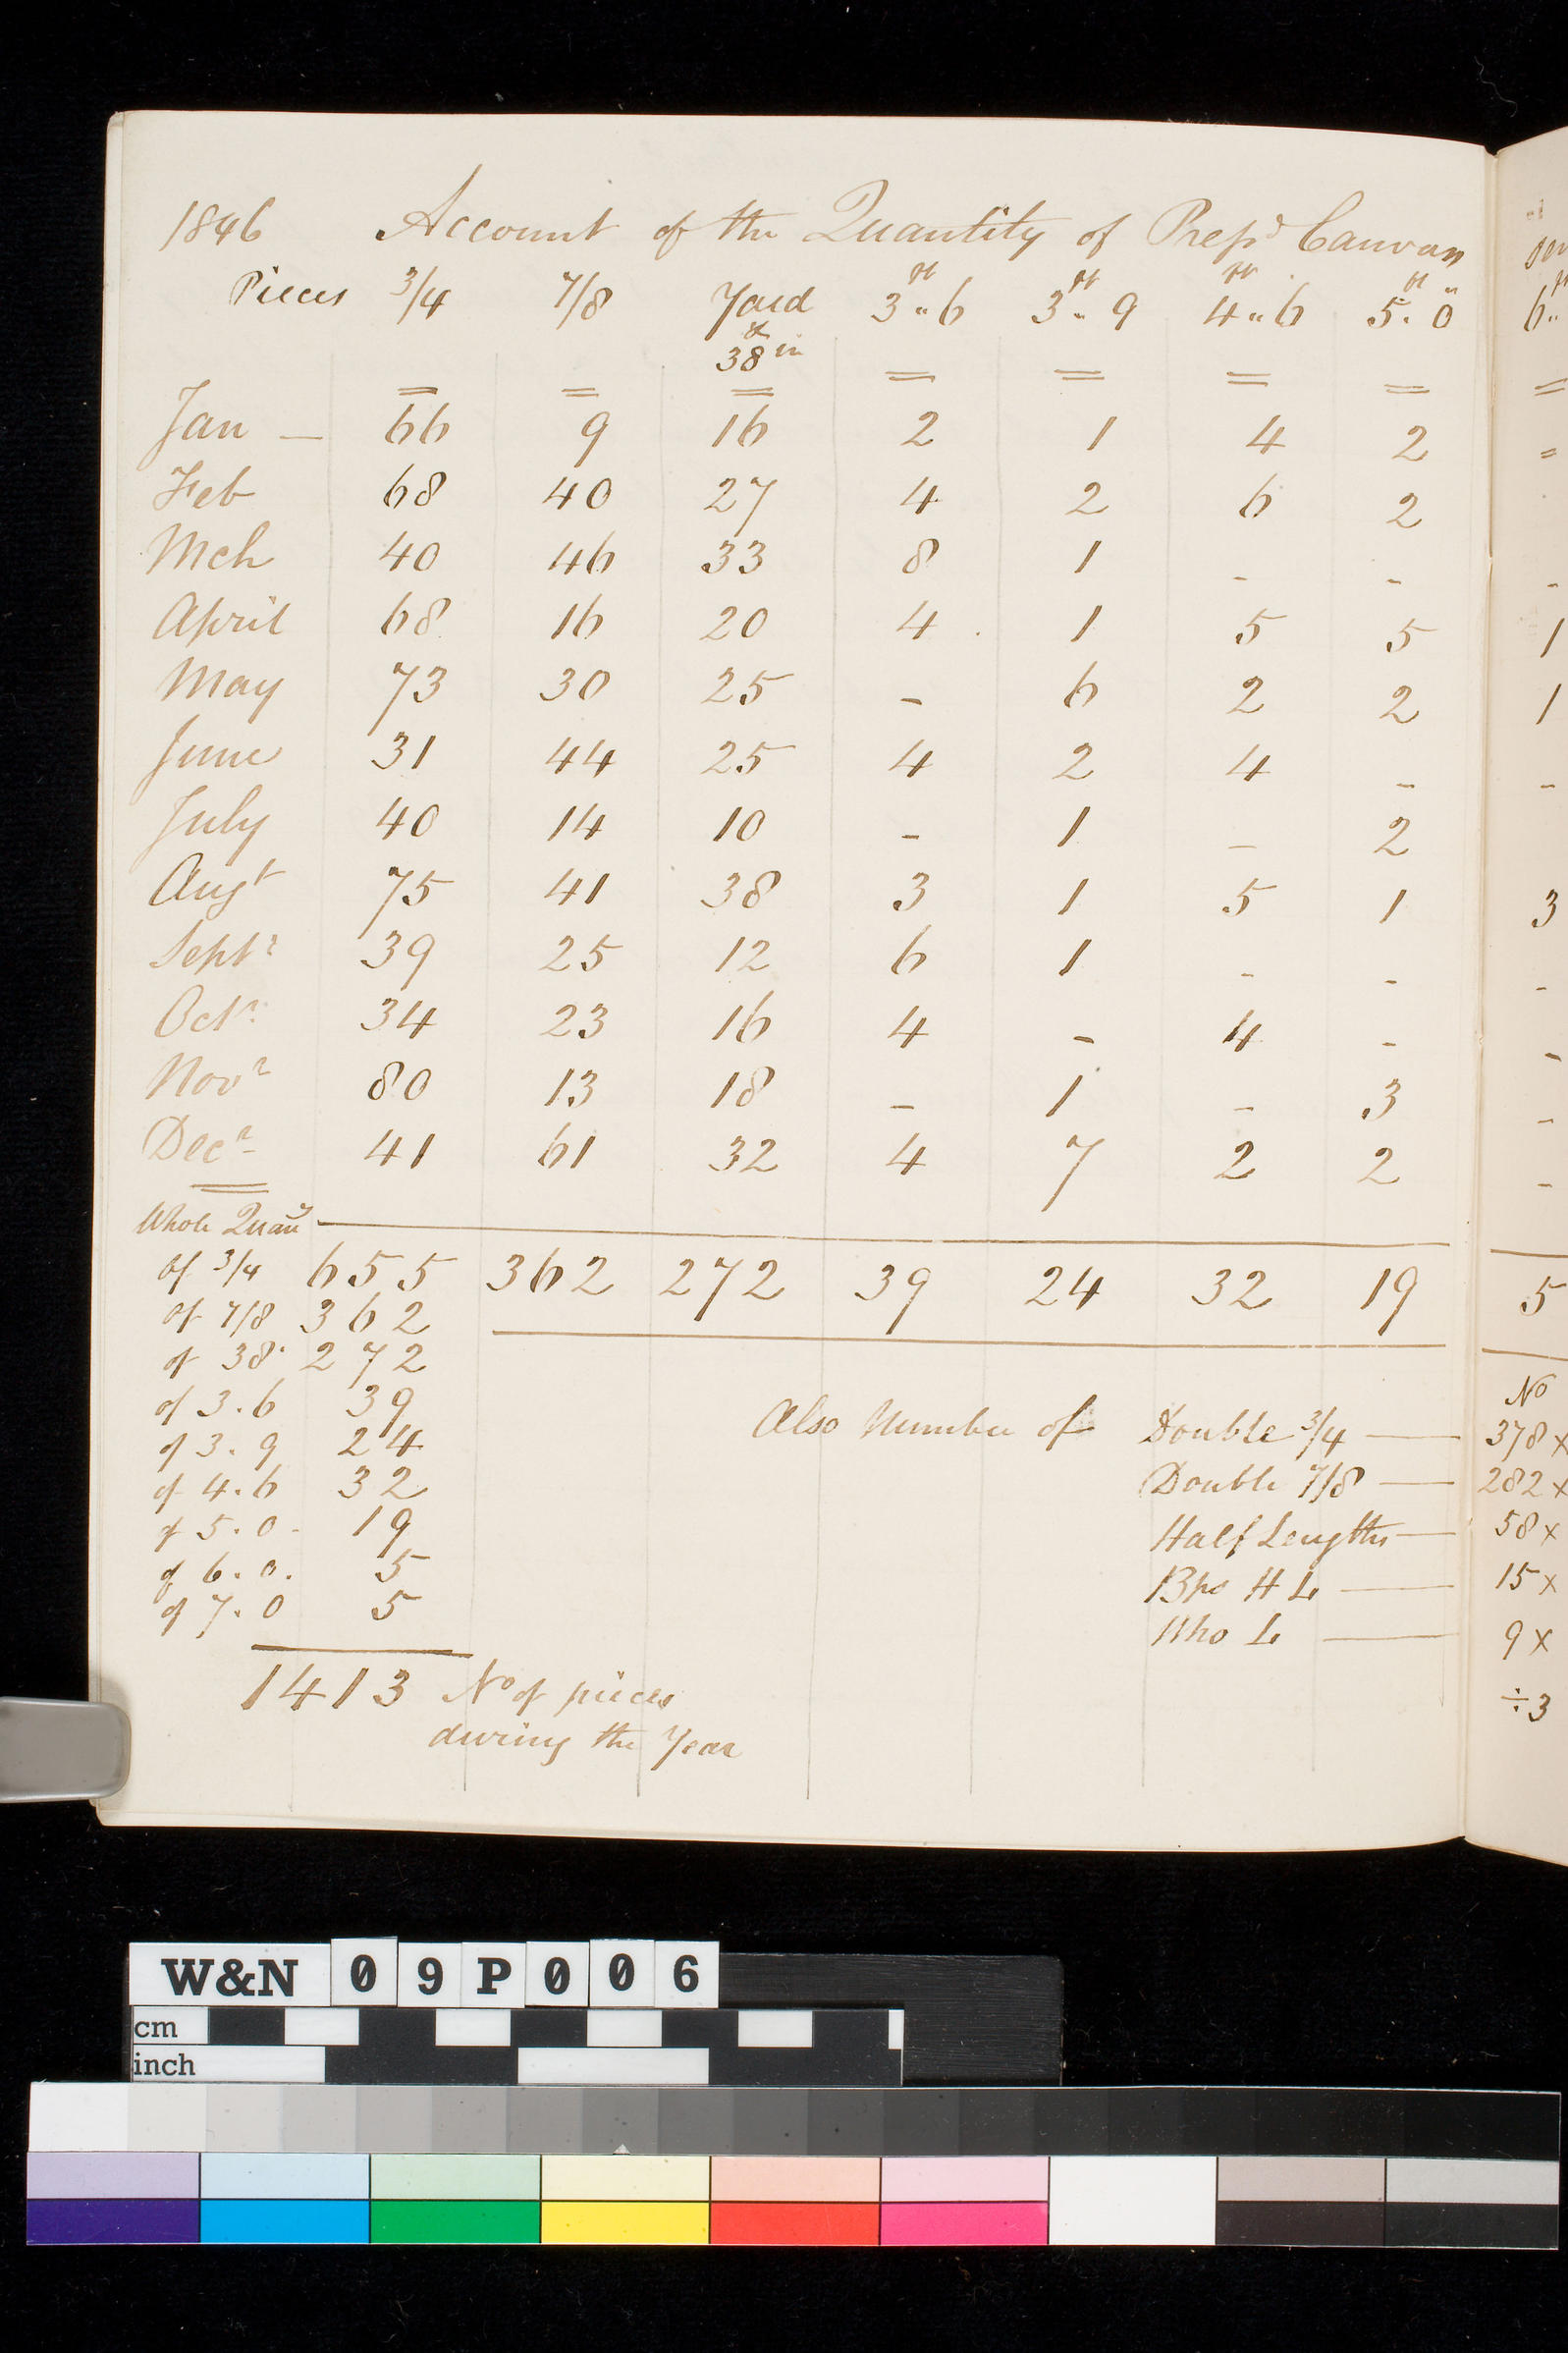 1846 Account of the Quantity of Prepd Canvas
Pieces 3/4 7/8 Yard & 38 in 3 ft " 6 3 ft " 9 4 ft " 6 5 ft " 0 " 6 "
Jan — 66 9 16 2 1 4 2 =
Feb 68 40 27 4 2 6 2
Mch 40 46 33 8 1 - - -
April 68 16 20 4 1 5 5 1
May 73 30 25 - 6 2 2 1
June 31 44 25 4 2 4 - -
July 40 14 10 - 1 - 2
Augt 75 41 38 3 1 5 1 3
Septr 39 25 12 6 1 - - -
Octr 34 23 16 4 - 4 - -
Novr 80 13 18 - 1 - 3 -
Decr 41 61 32 4 7 2 2 -
Whole Quany
Of 3/4 655 362 272 39 24 32 19 5
Of 7/8 362
of 38 272
of 3.6 39
of 3.9 24
of 4.6 32
of 5.0 - 19
of 6.0. 5
of 7.0 5
1413 No of pieces
during the Year
No
Also Number of Double 3/4 — 378 x
Double 7/8 — 282 x
Half Lengths — 58 x
Bps H L — 15 x
Who L — 9 x
÷ 3
W&N 09P006
cm
inch